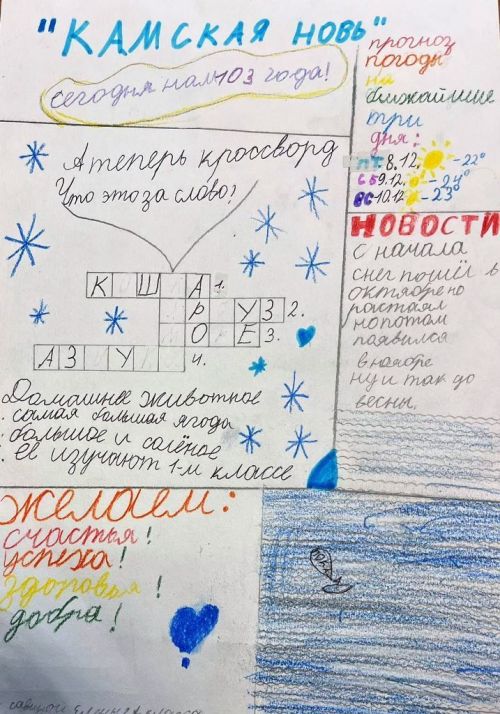 "КАМСКАЯ НОВЬ"
сегодня нам 103 года!
прогноз
погоды
на
ближайшие
три
дня:
ПТ 8.12. -22°
СБ 9.12. -24°
ВС 10.12 -23°
А теперь кроссворд
Что это за слово?
К Ш А 1.
Р УЗ 2.
О Е 3.
АЗ У 4.
Домашнее животное
. самая большая ягода
. большое и солёное
. Её изучают 1-м классе
НОВОСТИ
с начала
снег пошёл в
октябре но
растаял
но потом
появился
в ноябре
ну и так до
весны.
желаем:
счастья!
успеха!
здоровья!
добра!